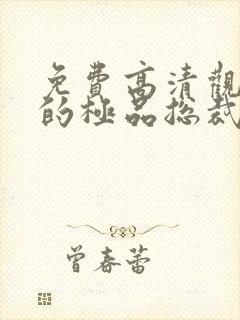 免費高清觀
的極品總裁
曾春蕾